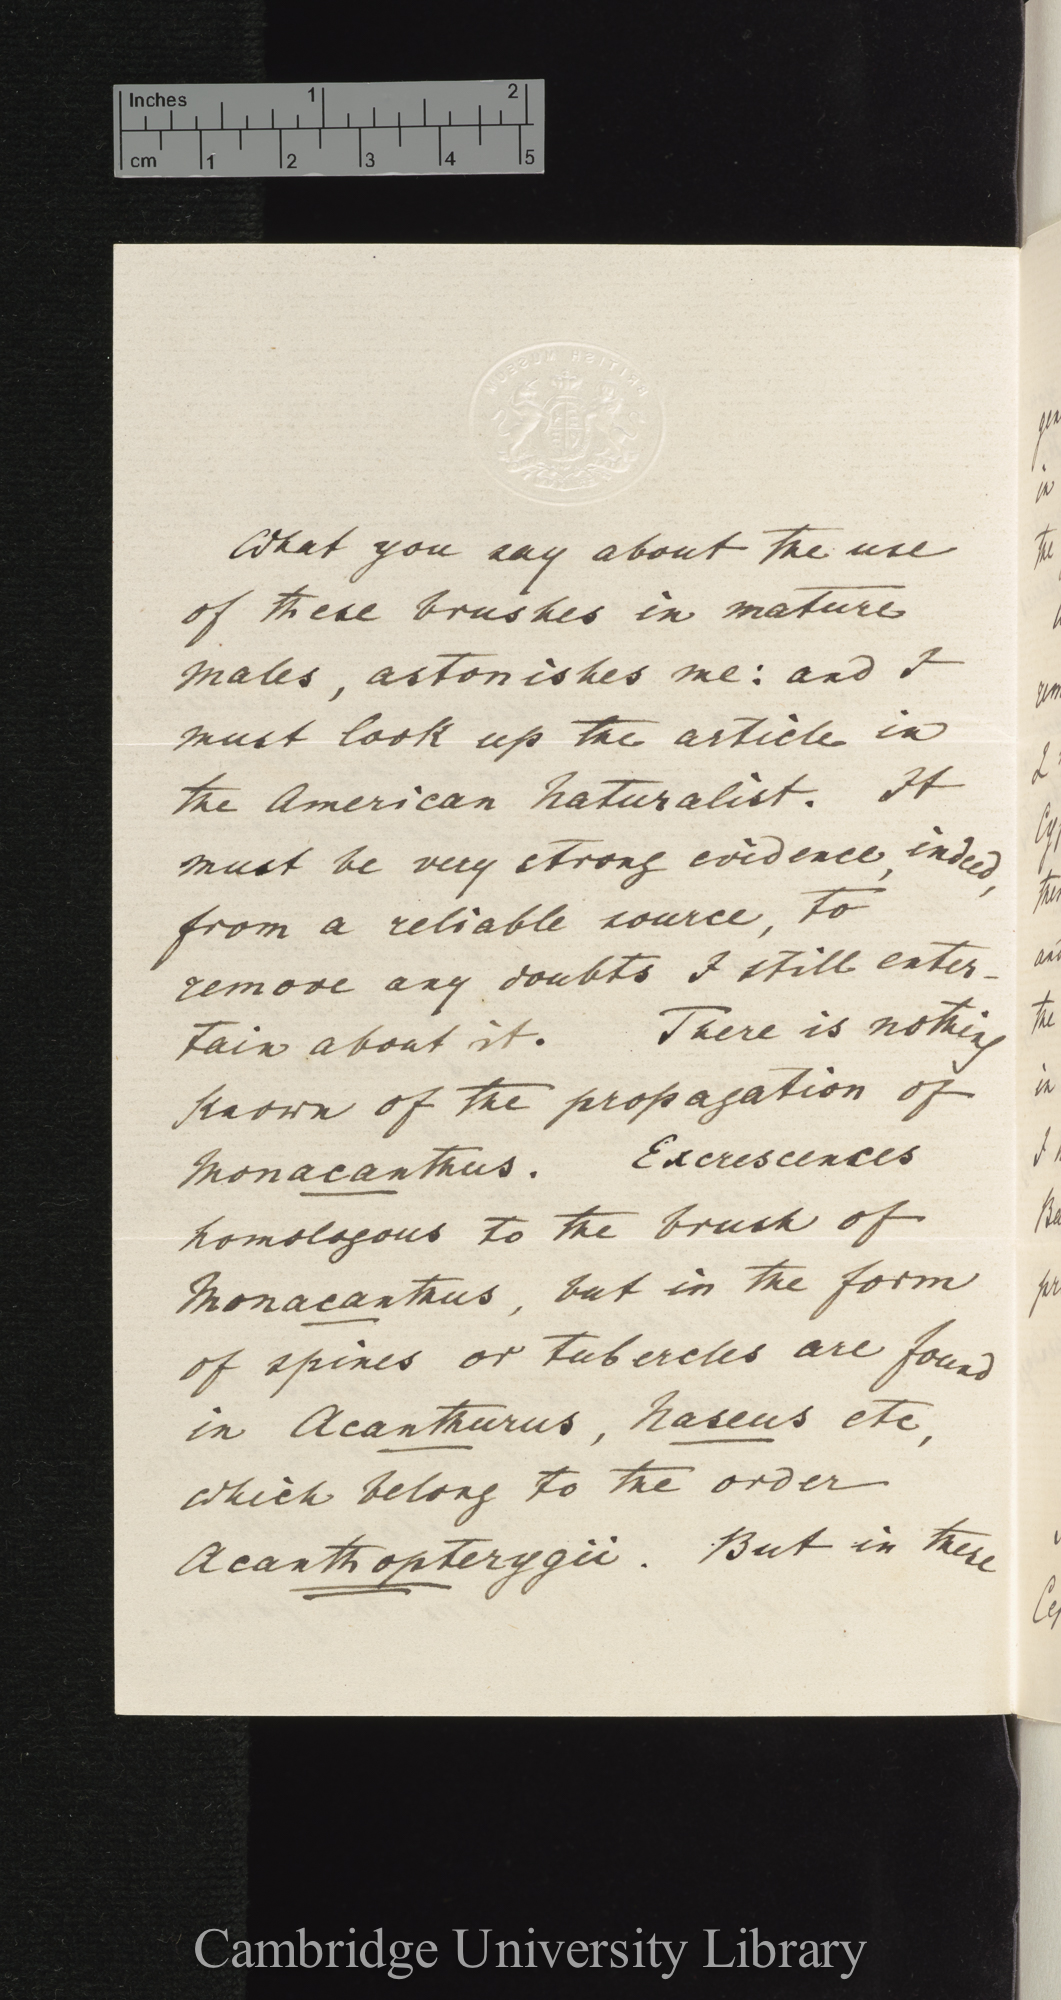 Inches
1
2
cm
1
2
3
4
5
BRITISH MUSEUM
What you say about the use
of these brushes in mature
males, astonishes me: and I
must look up the article in
the American Naturalist. It
must be very strong evidence, indeed,
from a reliable source, to
remove any doubts I still enter-
tain about it. There is nothing
known of the propagation of
Monacanthus. Excrescences
homologous to the brush of
Monacanthus, but in the form
of spines or tubercles are found
in Acanthurus, Naseus etc,
which belong to the order
Acanthopterygii. But in these
in
the
the
in
Cambridge University Library